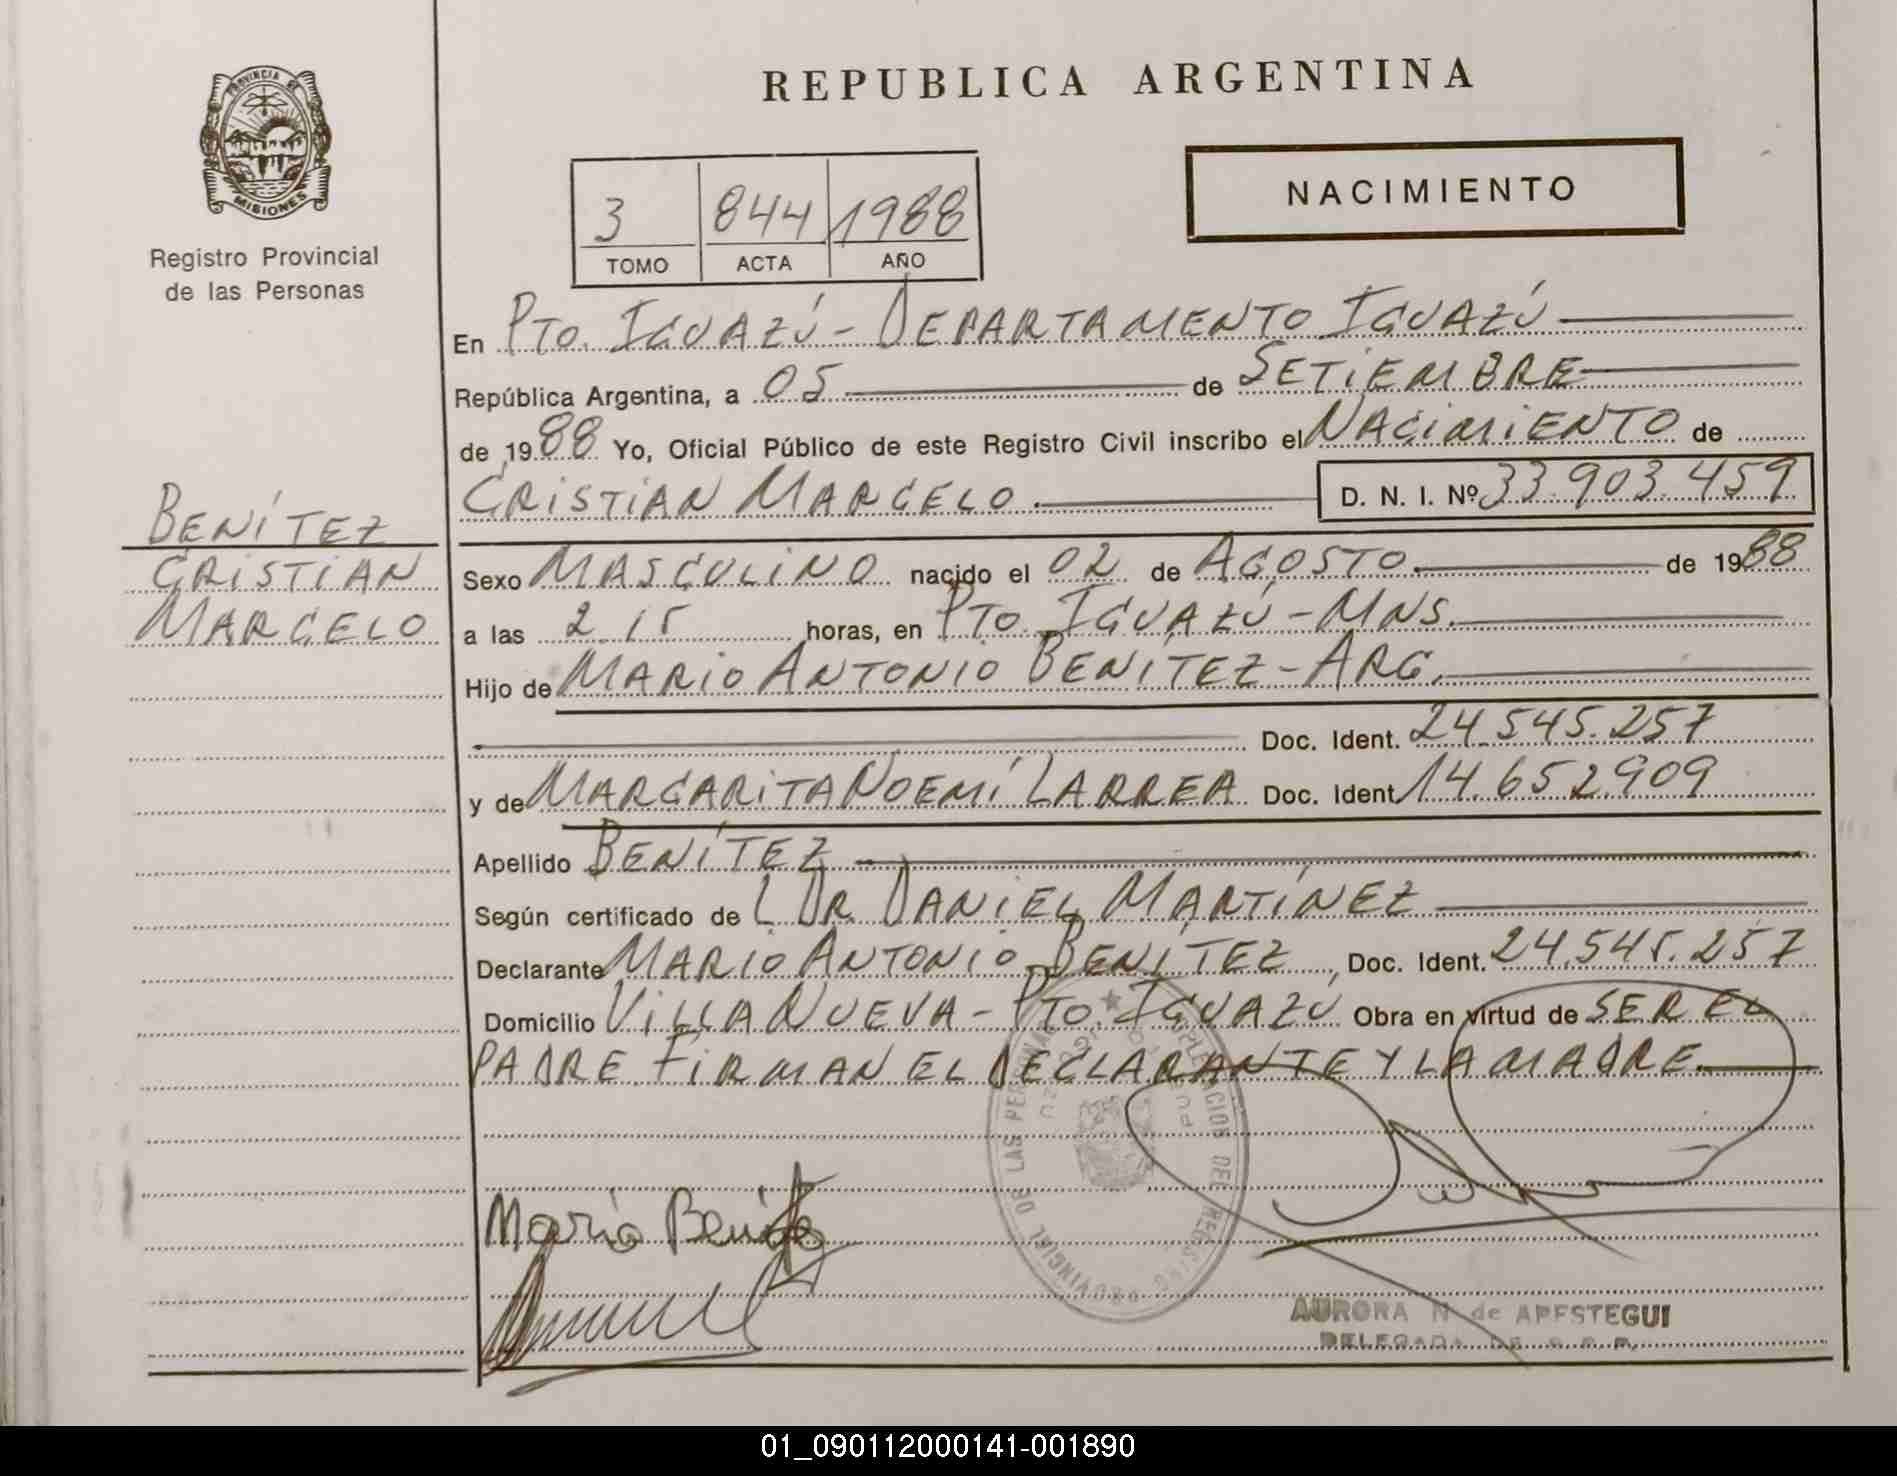 PROVINCIA DE
MISIONES
Registro Provincial
de las Personas
REPUBLICA ARGENTINA
NACIMIENTO
3 844 1988
TOMO ACTA AÑO
En PTO. IGUAZÚ - DEPARTAMENTO IGUAZÚ
República Argentina, a 05 de SETIEMBRE
de 1988 Yo, Oficial Público de este Registro Civil inscribo el NACIMIENTO de
CRISTIAN MARCELO. D. N. I. Nº 33.903.459
BENÍTEZ
CRISTIAN
MARCELO
Sexo MASCULINO nacido el 02 de AGOSTO. de 1988
a las 2.15 horas, en PTO. IGUAZÚ - MNS.
Hijo de MARIO ANTONIO BENÍTEZ - ARG.
Doc. Ident. 24.545.257
y de MARGARITA NOEMÍ LARREA Doc. Ident. 14.652.909
Apellido BENÍTEZ
Según certificado de L DR. DANIEL MARTÍNEZ
Declarante MARIO ANTONIO BENÍTEZ, Doc. Ident. 24.545.257
Domicilio VILLA NUEVA - PTO. IGUAZÚ Obra en virtud de SER EL
PADRE. FIRMAN EL DECLARANTE Y LA MADRE.
Mario Benitez
AURORA N de APESTEGUI
DELEGADA
01_090112000141-001890